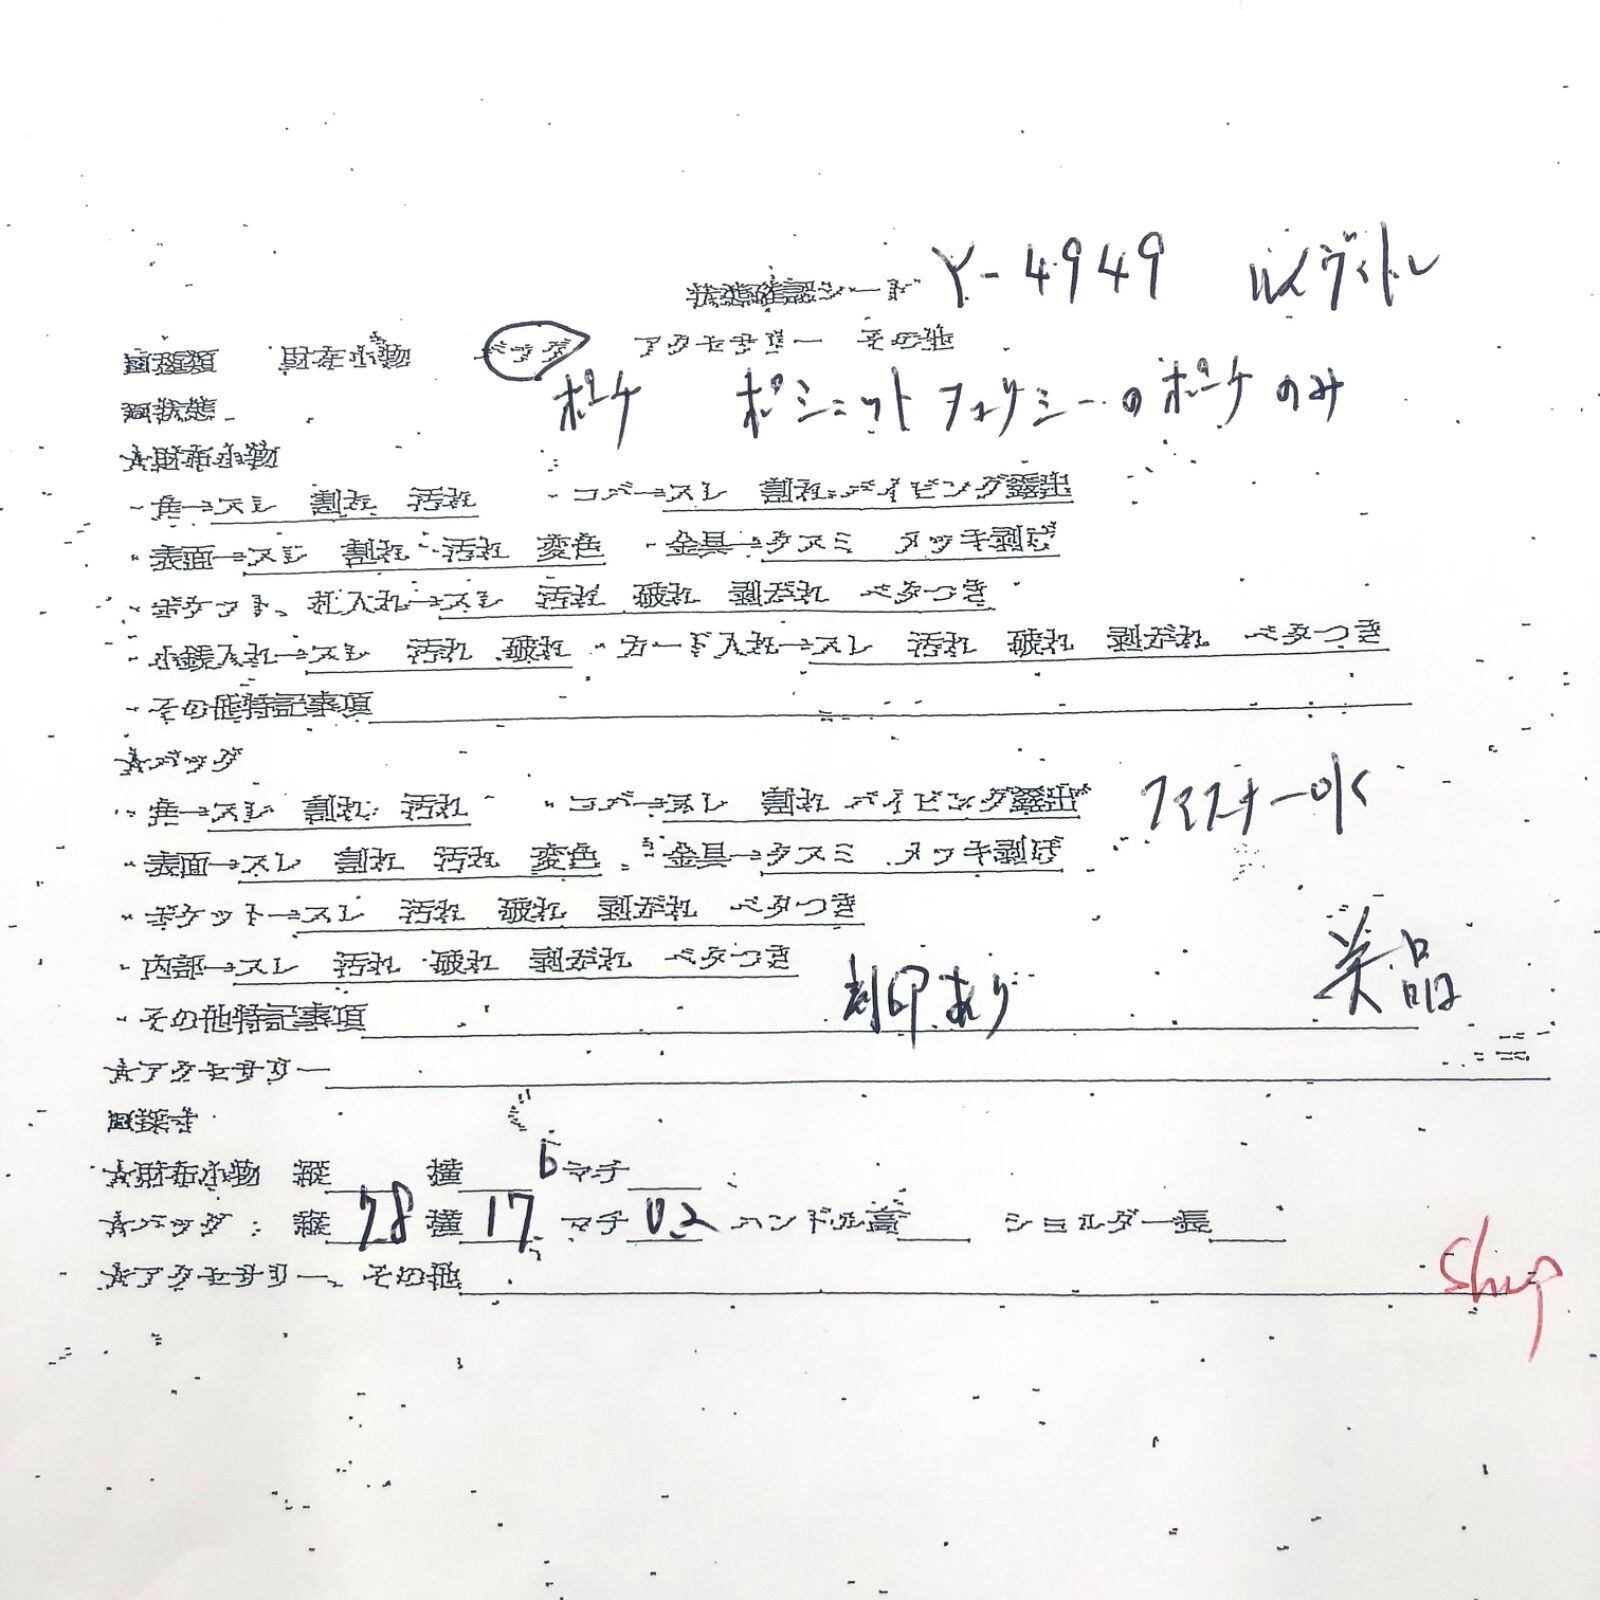 状態確認シート Y-4949 ルイヴィトン
□種類 財布小物 バッグ アクセサリー その他
□状態 ポーチ ポシェット フェリシーのポーチのみ
☆財布小物
・角→スレ 割れ 汚れ ・コバ→スレ 割れ パイピング露出
・表面→スレ 割れ 汚れ 変色 ・金具→クスミ メッキ剥げ
・ポケット、札入れ→スレ 汚れ 破れ 剥がれ ベタつき
・小銭入れ→スレ 汚れ 破れ ・カード入れ→スレ 汚れ 破れ 剥がれ ベタつき
・その他特記事項
☆バッグ
・角→スレ 割れ 汚れ ・コバ→スレ 割れ パイピング露出 ファスナーOK
・表面→スレ 割れ 汚れ 変色 ・金具→クスミ メッキ剥げ
・ポケット→スレ 汚れ 破れ 剥がれ ベタつき
・内部→スレ 汚れ 破れ 剥がれ ベタつき 美品
・その他特記事項 刻印あり
☆アクセサリー
□採寸
☆財布小物 縦 横 マチ
☆バッグ：縦 横 17 マチ 0.2 ハンドル高 ショルダー長
☆アクセサリー、その他